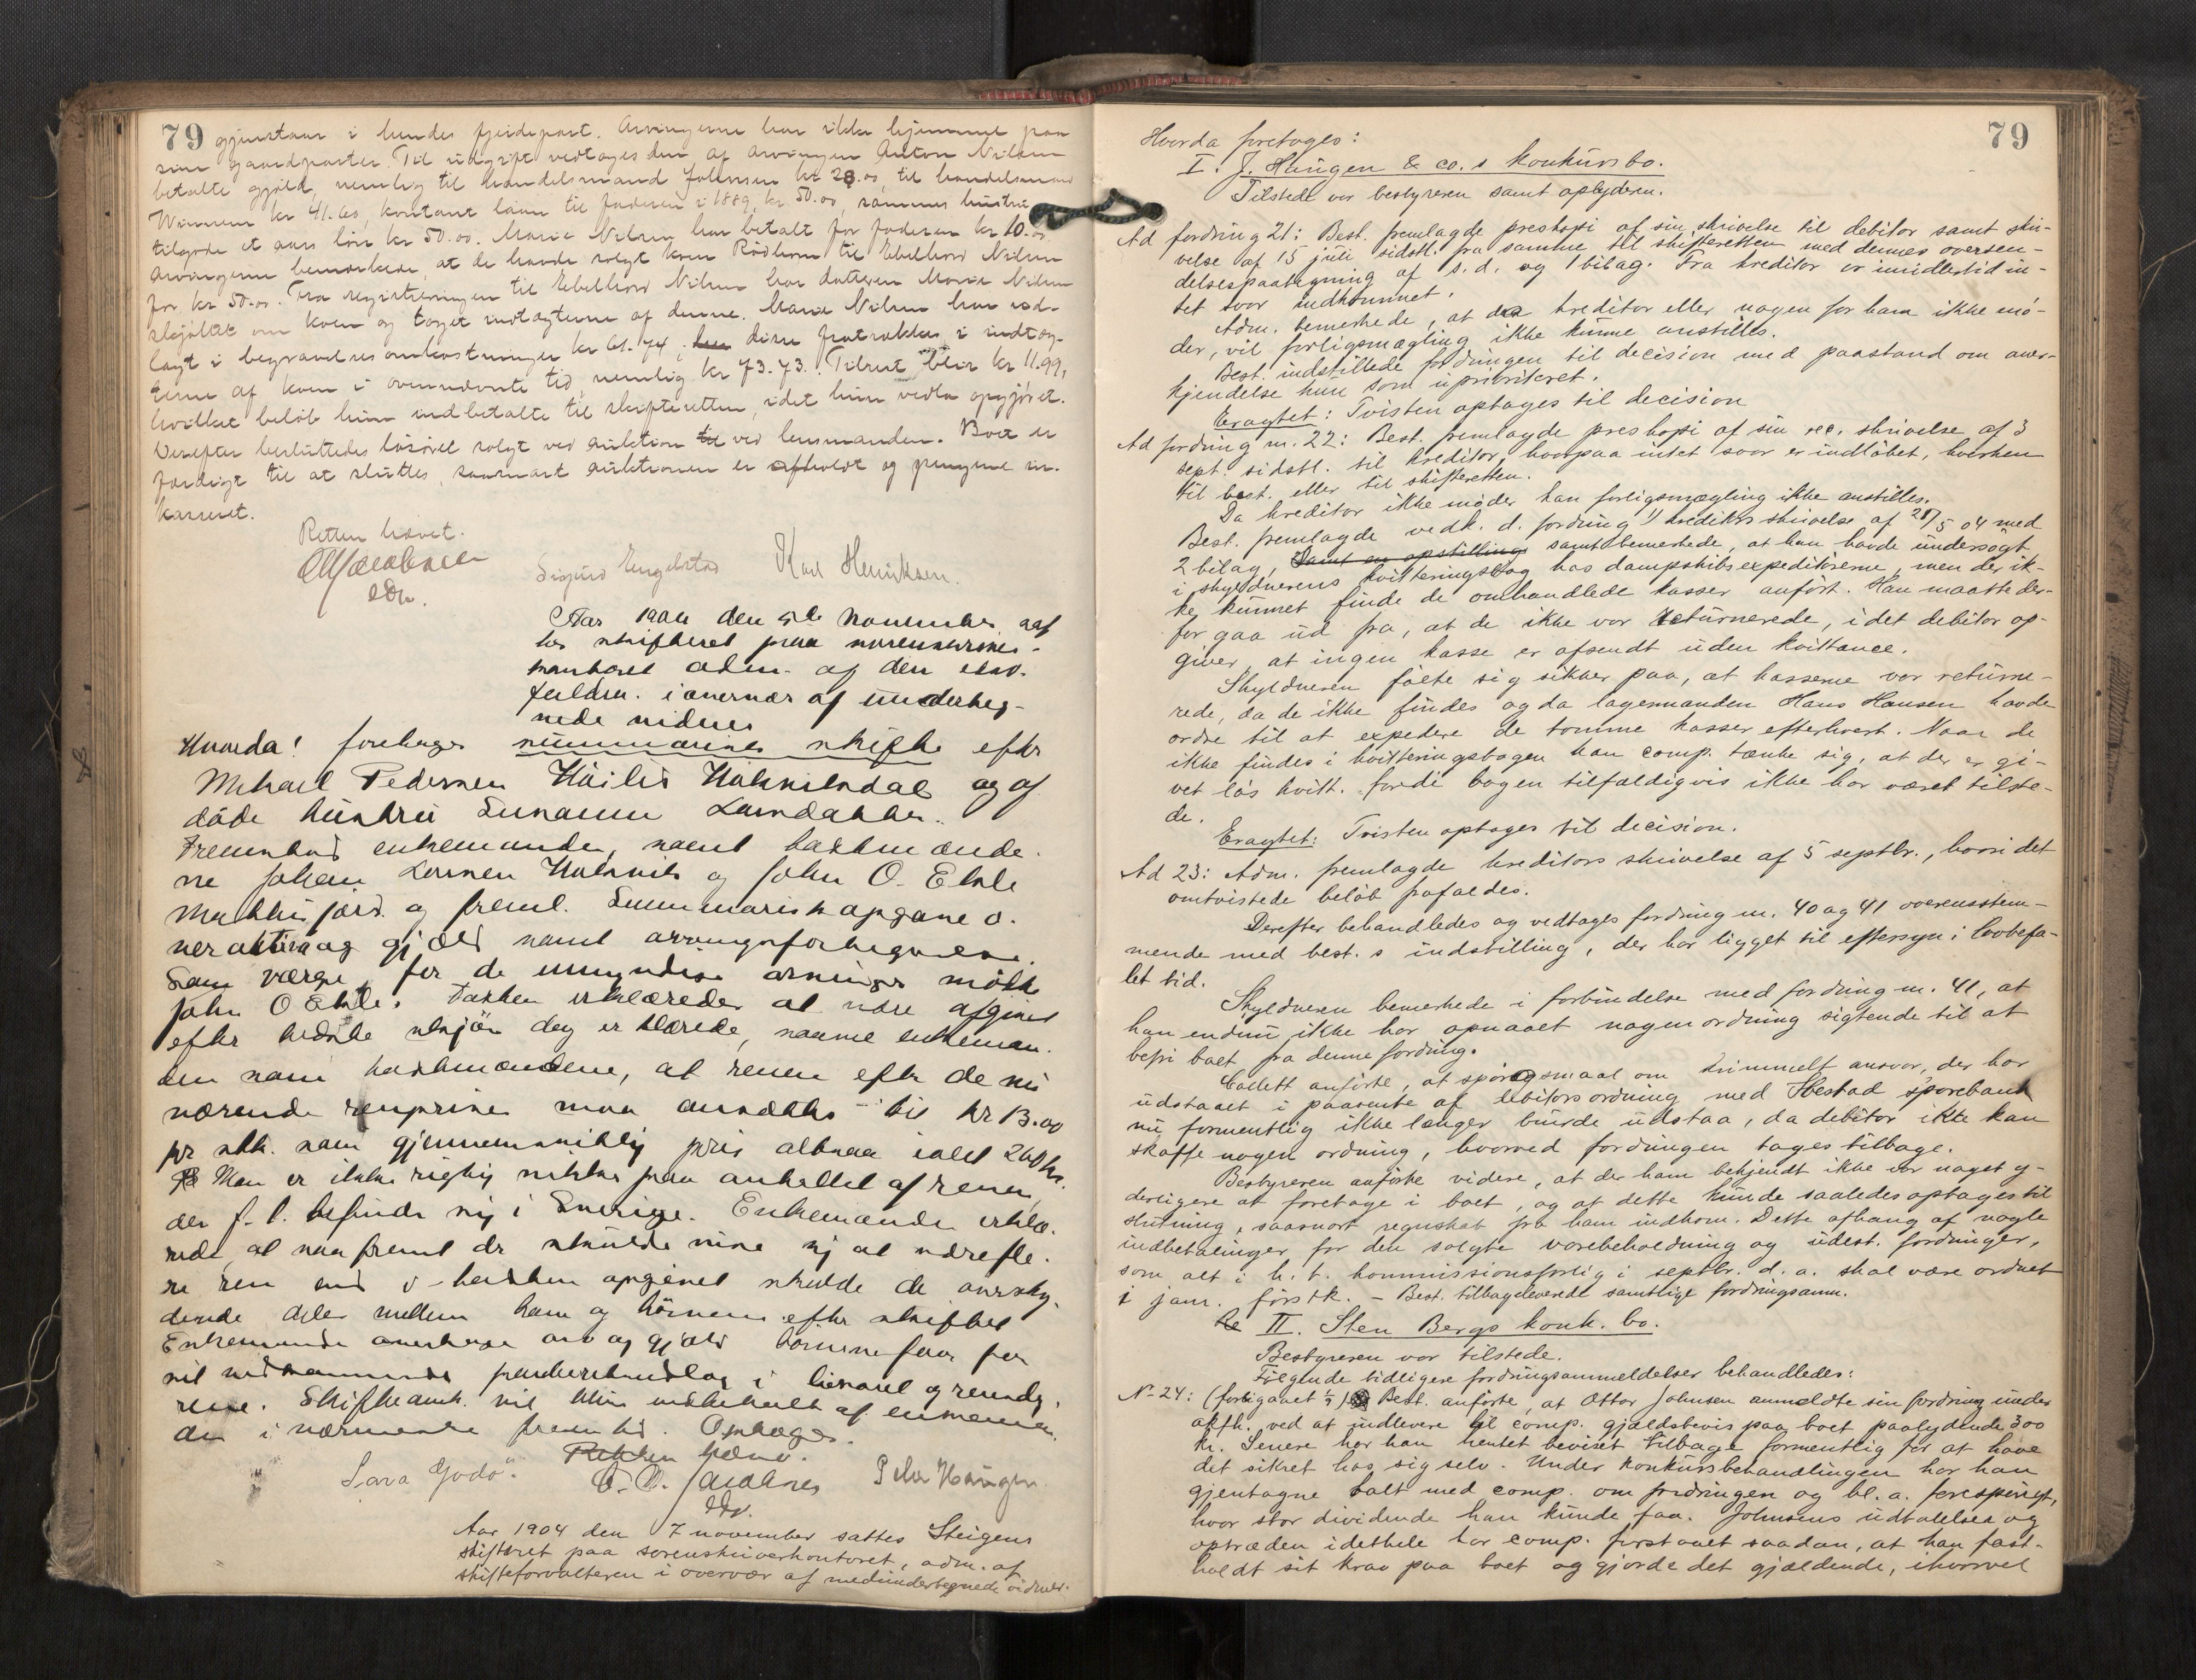 79
gjenstaar i hendes fjerdepart. Arvingerne har ikke hjemmel paa
sine gaardparter. Til udgift vedtages den af arvingen Anton Nilsen
betalte gjæld, nemlig til handelsmand Johnsen kr 28.00, til handelsmand
kr 41.60, kontant laan til faderen i 1889, kr 50.00, sammes hustru
tilgode et aars løn kr 50.00. Marie Nilsen har betalt for faderen kr 10.00
Arvingerne bemærkede, at de havde solgt koen Rødhorn til Ebelhard Nilsen
for kr 50.00. Fra registreringen til Ebelhard Nilsen har datteren Marie Nilsen
skjøttet om koen og taget indtægterne af denne. Marie Nilsen har ud-
lagt i begravelsesomkostninger kr 61.74; disse fratrækkes i indtæg-
terne af koen i ovennævnte tid, nemlig kr 73.73. Tilrest blir kr 11.99,
hvilket beløb hun indbetalte til skifteretten, idet hun vedtog opgjøret.
Derefter besluttedes løsøret solgt ved auktion til ved lensmanden. Boet er
færdigt til at sluttes, saasnart auktionen er afholdt og pengene in-
kasseret.
Retten hævet.
Jacobsen
edv.
Sigurd Engelstad Karl Henriksen.
Aar 1904 den 5te November sat
tes skifteret paa sorenskriver-
kontoret adm. af den edsv.
fuldm. i overvær af underteg-
nede vidner
Hvorda! foretages summarisk skifte efter
Mikael Pedersen og af
døde hustru Susanne Larsdatter.
Fremstod enkemanden, samt takstmænde-
ne Johan Larsen og John O.
og freml. Summarisk opgave o-
ver aktiva og gjæld samt arvingsfortegnelse.
Som værge for de umyndige arvinger mødte
John O. Taksten erklæredes at være afgivet
efter bedste skjøn og erklærede, saavel enkeman-
den som takstmændene, at renen efter de nu
værende renpriser maa ansættes til kr 13.00
pr stk. som gjennemsnitlig pris altsaa ialt 260 kr.
Man er ikke rigtig sikker paa antallet af rener,
der f. t. befinder sig i Sverige. Enkemanden erklæ-
rede, at saafremt der skulde vise sig at være fle-
re ren end i taksten opgivet skulde de oversky-
dende deles mellem ham og børnene efter skiftet
Enkemanden overtager arv og gjæld børnene faar for
sit vedkommende panteretsudlæg i løsøret og rensdy-
rene. Skifteomk. vil blive indbetalt af enkeman-
den i nærmeste fremtid. Optages.
Retten hævet.
Sara Godø. O. A. Jacobsen Peder Haugen
edv.
Aar 1904 den 7 november sattes Steigens
skifteret paa sorenskriverkontoret, adm. af
skifteforvalteren i overvær af medundertegnede vidner.
79
Hvorda foretoges:
I. J. Haugen & co.s konkursbo.
Tilstede var bestyreren samt opbyderen.
Ad fordring 21: Best. fremlagde preskopi af sin skrivelse til debitor samt skri-
velse af 15 juli sidstl. fra samme til skifteretten med dennes oversen-
delsespaategning af s. d. og 1 bilag. Fra kreditor er imidlertid in-
tet svar indkommet.
Adm. bemerkede, at da kreditor eller nogen for ham ikke mø-
der, vil forligsmægling ikke kunne anstilles.
Best. indstillede fordringen til decision med paastand om aner-
kjendelse kun som uprioriteret.
Eragtet: Tvisten optages til decision
Ad fordring nr. 22: Best. fremlagde preskopi af sin rec. skrivelse af 3
sept. sidstl. til kreditor, hvorpaa intet svar er indløbet, hverken
til best. eller til skifteretten.
Da kreditor ikke møder kan forligsmægling ikke anstilles.
Best. fremlagde vedk. d. fordring 1) kreditors skrivelse af 28/5 04 med
2 bilag, samt en opstilling samt bemerkede, at han havde undersøgt
i skyldnerens kvitteringsbog hos dampskibsexpeditørerne, men der ik-
ke kunnet finde de omhandlede kasser anført. Han maatte der-
for gaa ud fra, at de ikke var returnerede, idet debitor op-
giver, at ingen kasse er afsendt uden kvittance.
Skyldneren følte sig sikker paa, at kasserne var returne-
rede, da de ikke findes og da lagermanden Hans Hansen havde
ordre til at expedere de tomme kasser efterhvert. Naar de
ikke findes i kvitteringsbogen kan comp. tænke sig, at der er gi-
vet løs kvitt. fordi bogen tilfældigvis ikke har været tilste-
de.
Eragtet: Tvisten optages til decision.
Ad 23: Adm. fremlagde kreditors skrivelse af 5 septbr., hvori det
omtvistede beløb frafaldes.
Derefter behandledes og vedtages fordring nr. 40 og 41 overensstem-
mende med best.s indstilling, der har ligget til eftersyn i lovbefa-
let tid.
Skyldneren bemerkede i forbindelse med fordring nr. 41, at
han endnu ikke har opnaaet nogen ordning sigtende til at
befri boet fra denne fordring.
Collett anførte, at spørgsmaal om kriminelt ansvar, der har
udstaaet i paavente af debitors ordning med Ibestad sparebank
nu formentlig ikke længer burde udstaa, da debitor ikke kan
skaffe nogen ordning, hvorved fordringen tages tilbage.
Bestyreren anførte videre, at der ham bekjendt ikke var noget y-
derligere at foretage i boet, og at dette kunde saaledes optages til
slutning, saasnart regnskab fra ham indkom. Dette afhang af nogle
indbetalinger for den solgte varebeholdning og udest. fordringer,
som alt i h. t. kommissionsforlig i septbr. d. a. skal være ordnet
i janr. førstk. – Best. tilbageleverede samtlige fordringsanm.
II. Sten Bergs konk. bo.
Bestyreren var tilstede.
Følgende tidligere fordringsanmeldelser behandledes:
No 24: Best. anførte, at Ottar Johnsen anmeldte sin fordring under
ved at indlevere til comp. gjældsbevis paa boet paalydende 300
kr. Senere har han hentet beviset tilbage formentlig for at have
det sikret hos sig selv. Under konkursbehandlingen har han
gjentagne talt med comp. om fordringen og bl. a. forespurgt,
hvor stor dividende han kunde faa. Johnsens udtalelser og
optræden idethele har comp. forstaaet saadan, at han fast-
holdt sit krav paa boet og gjorde det gjældende, ihvorvel